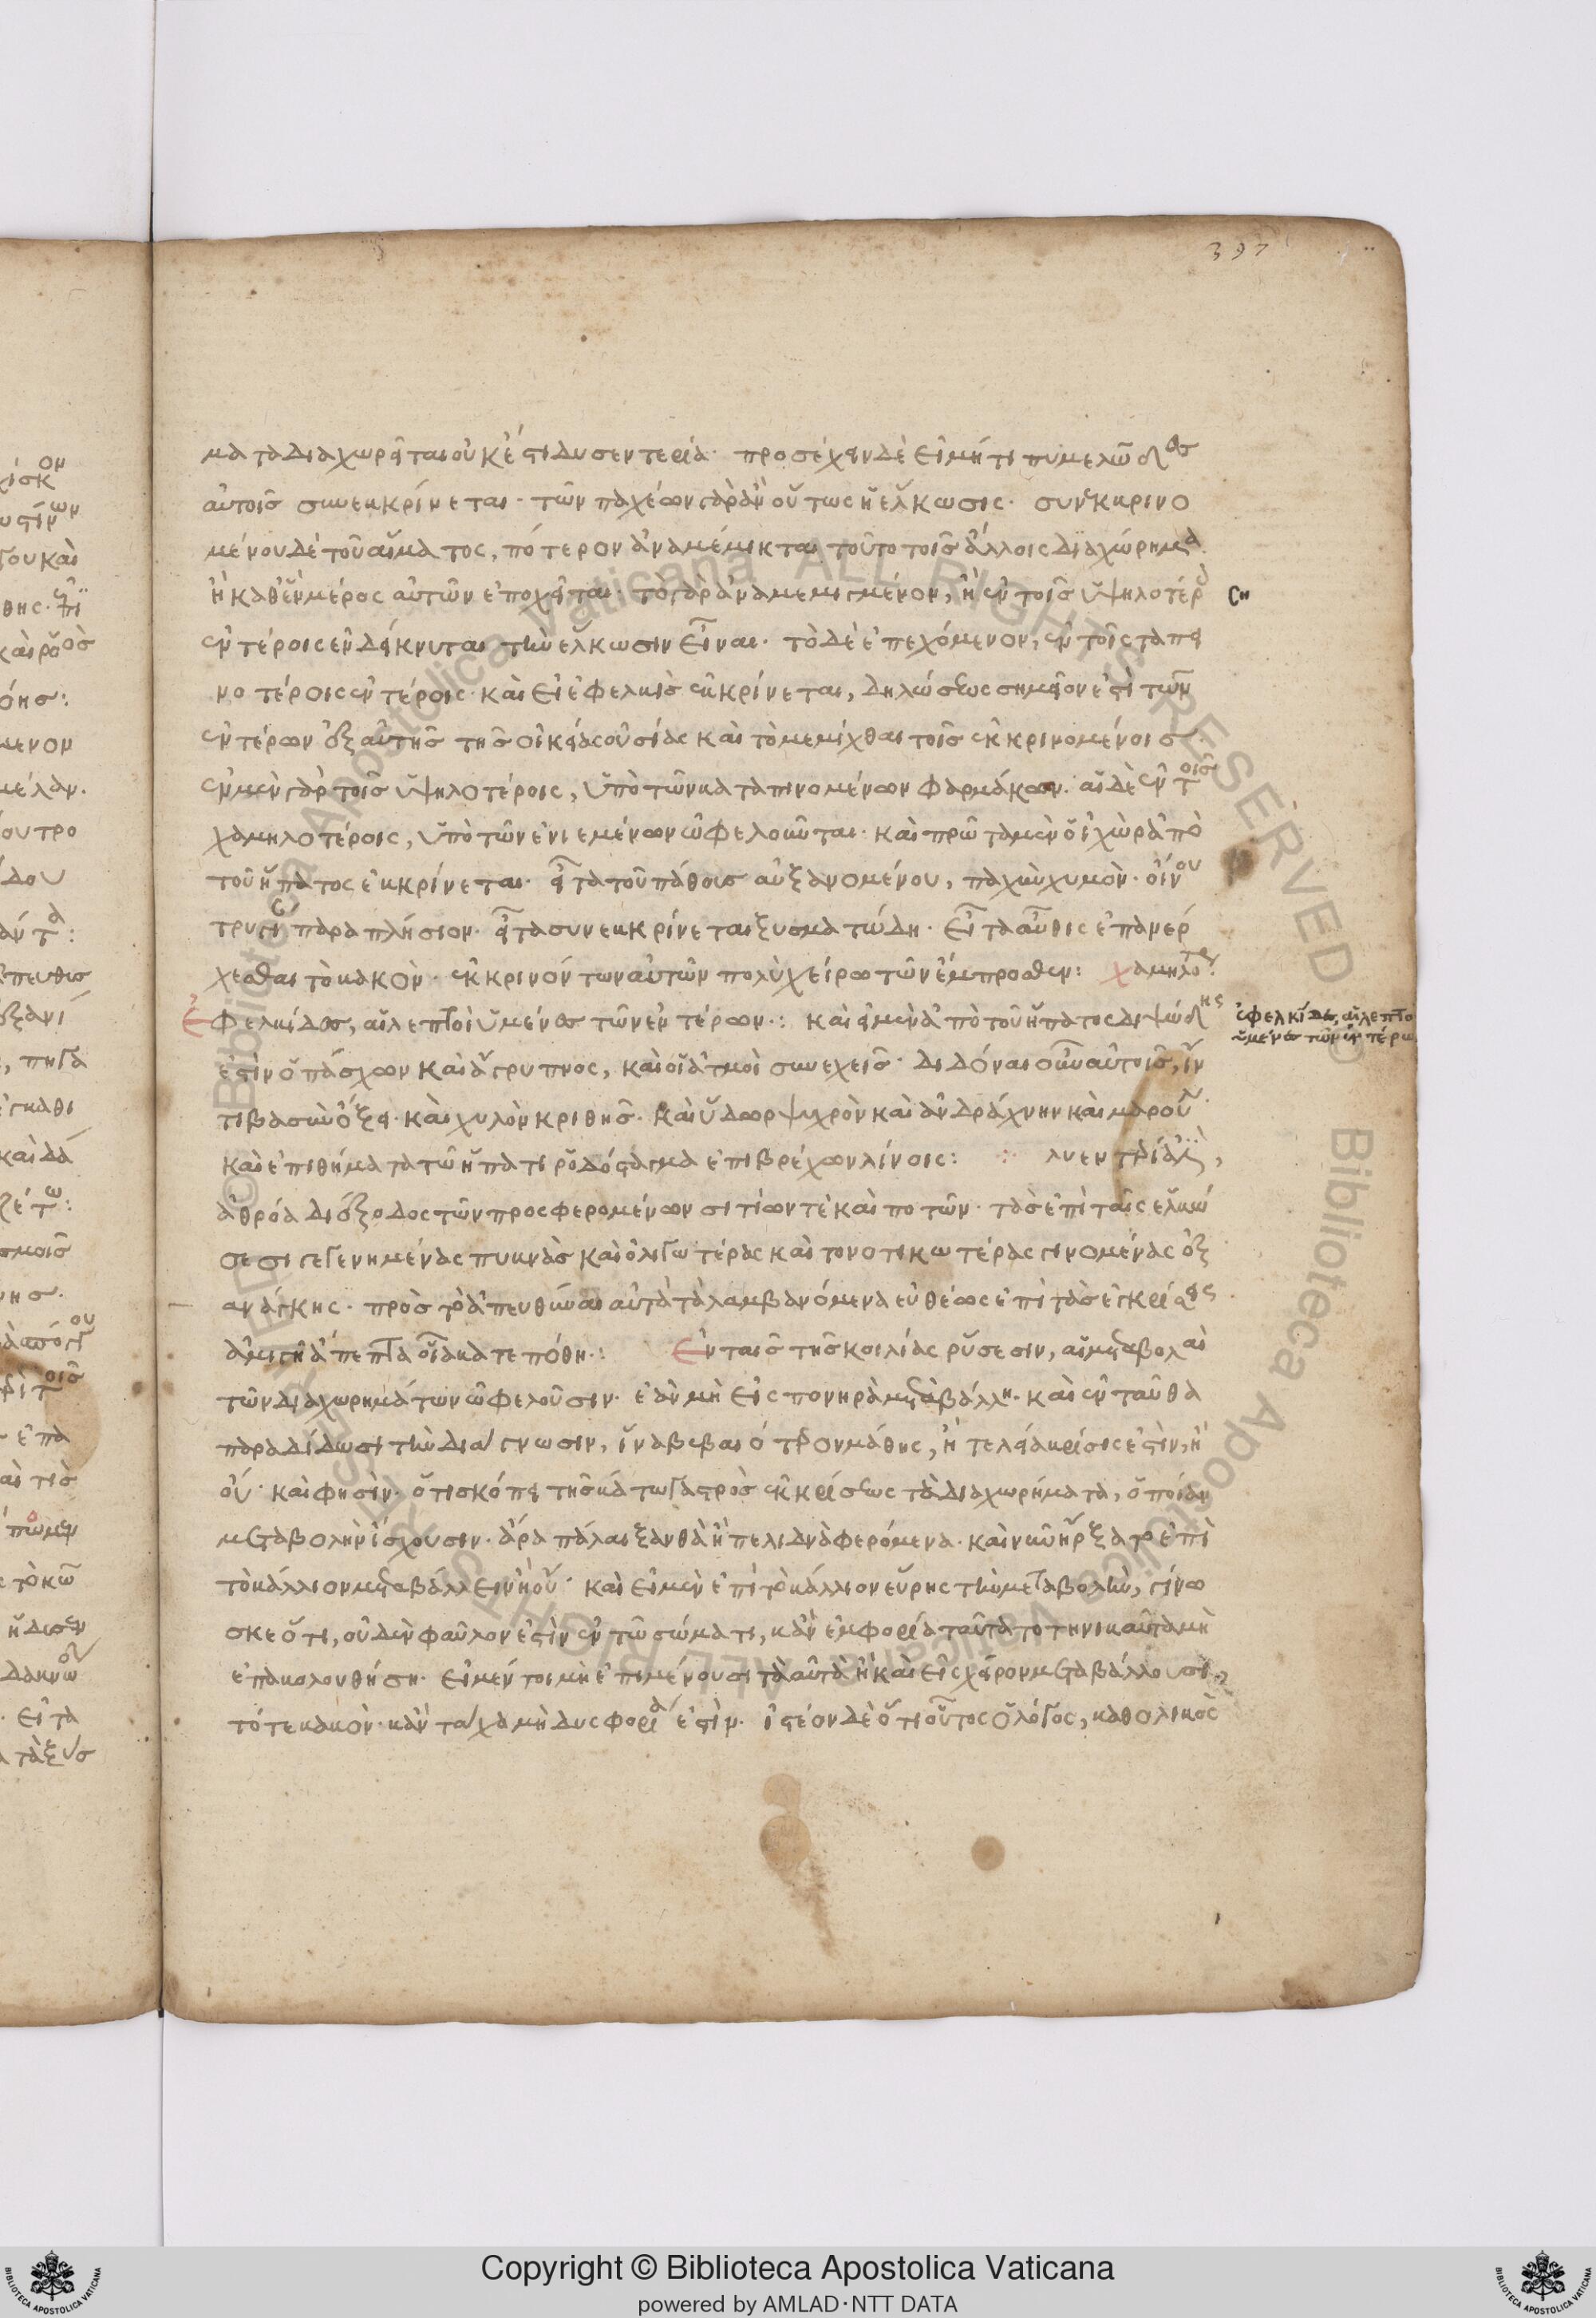 397
ματα διαχωρεῖται οὐκ ἔστι δυσεντερία· προσέχειν δὲ εἰ μή τι πιμελῶδες
αὐτοῖς συνεκκρίνεται· τῶν παχέων γὰρ ἂν οὕτως ἡ ἕλκωσις· συνεκκρινο
μένου δὲ τοῦ αἵματος, πότερον ἀναμέμικται τοῦτο τοῖς ἄλλοις διαχώρημα
ἢ καθ' ἓν μέρος αὐτῶν ἐποχεῖται· τὸ γὰρ ἀναμεμιγμένον, ἢ ἐν τοῖς ὑψηλοτέρ
ἐντέροις ἐνδείκνυται τὴν ἕλκωσιν εἶναι· τὸ δὲ ἐπεχόμενον, ἐν τοῖς ταπει
νοτέροις ἐντέροις· καὶ εἰ ἐφελκὶς ἐκκρίνεται, δηλώσεως σημεῖον ἐστὶ τῶν
ἐντέρων ἐξ αὐτῆς τῆς οἰκείας οὐσίας καὶ τὸ μεμίχθαι τοῖς ἐκκρινομένοις
ἐν μὲν γὰρ τοῖς ὑψηλοτέροις, ὑπὸ τῶν καταπινομένων φαρμάκων· αἱ δὲ ἐν τοῖς
χαμηλοτέροις, ὑπὸ τῶν ἐνιεμένων ὠφελοῦνται· καὶ πρῶτα μὲν ὁ ἰχὼρ ἀπὸ
τοῦ ἥπατος ἐκκρίνεται· εἶτα τοῦ πάθους αὐξανομένου, παχὺν χυμὸν· οἴνου
τρυγὶ παραπλήσιον· εἶτα συνεκκρίνεται ξυσματώδη· εἶτα αὖθις ἐπανέρ
χεσθαι τὸ κακὸν· ἐκκρινόντων αὐτῶν πολὺ χείρω τῶν ἔμπροσθεν: χαμηλοτε
Ἐφελκίδες, αἱ λεπτοὶ ὑμένες τῶν ἐντέρων.: καὶ εἰ μὲν ἀπὸ τοῦ ἥπατος διψώδης
ἐστὶν ὁ πάσχων καὶ ἄγρυπνος, καὶ οἱ ἀτμοὶ συνεχεῖς· διδόναι οὖν αὐτοῖς, ἰν
τιβα σὺν ὄξει· καὶ χυλὸν κριθῆς· καὶ ὕδωρ ψυχρὸν καὶ ἀνδράχνην καὶ μαροῦ
καὶ ἐπιθήματα τῶ ἥπατι ῥοδόσταγμα ἐπιβρέχων λίνοις: λυεντερία,
ἀθρόα διέξοδος τῶν προσφερομένων σιτίων τὲ καὶ ποτῶν· τὰς ἐπὶ ταῖς ἑλκώ
σεσι γεγενημένας πυκνὰς καὶ ὀλιγωτέρας καὶ τονοτικωτέρας γινομένας ἐξ
ἀνάγκης· πρὸς τὸ ἀπευθῦναι αὐτὰ τὰ λαμβανόμενα εὐθέως ἐπὶ τὰς ἐκκρίσεις
ἀμιγῆ ἄπεπτα οἷα κατεπόθη.: Ἐν ταῖς τῆς κοιλίας ῥύσεσιν, αἱ μεταβολαὶ
τῶν διαχωρημάτων ὠφελοῦσιν· ἐὰν μὴ εἰς πονηρὰ μεταβάλλη· καὶ ἐνταῦθα
παραδίδωσι τὴν διάγνωσιν, ἵνα βεβαιότερον μάθης, ἢ τελεία κρίσις ἐστὶν, ἢ
οὐ· καὶ φησὶν· ὅτι σκόπει τῆς κάτω γαστρὸς ἐκκρίσεως τὰ διαχωρήματα, ὁποίαν
μεταβολὴν ἴσχουσιν· ἄρα πάλαι ξανθὰ ἢ πελιδνὰ φερόμενα· καὶ νῦν ἤρξατο ἐπὶ
τὸ κάλλιον μεταβάλλειν ἢ οὔ· καὶ εἰ μὲν ἐπὶ τὸ κάλλιον εὕρης τὴν μεταβολὴν, γίνω
σκε ὅτι, οὐδὲν φαῦλον ἐστὶν ἐν τῶ σώματι, κἂν ἐμφορία ταῦτα τοτηνικαῦτα μὴ
ἐπακολουθήση· εἰ μέν τοι μὴ ἐπιμένουσι τὰ αὐτὰ ἢ καὶ εἰς χεῖρον μεταβάλλουσι,
τότε κακὸν· κἂν τάχα μὴ δυσφορία ἐστὶν· ἰστέον δὲ ὅτι οὗτος ὁ λόγος, καθολικὸς
ἐφελκίδες, αἱ λεπτο
ὑμένες τῶν ἐντέρω
Copyright © Biblioteca Apostolica Vaticana
powered by AMLAD·NTT DATA